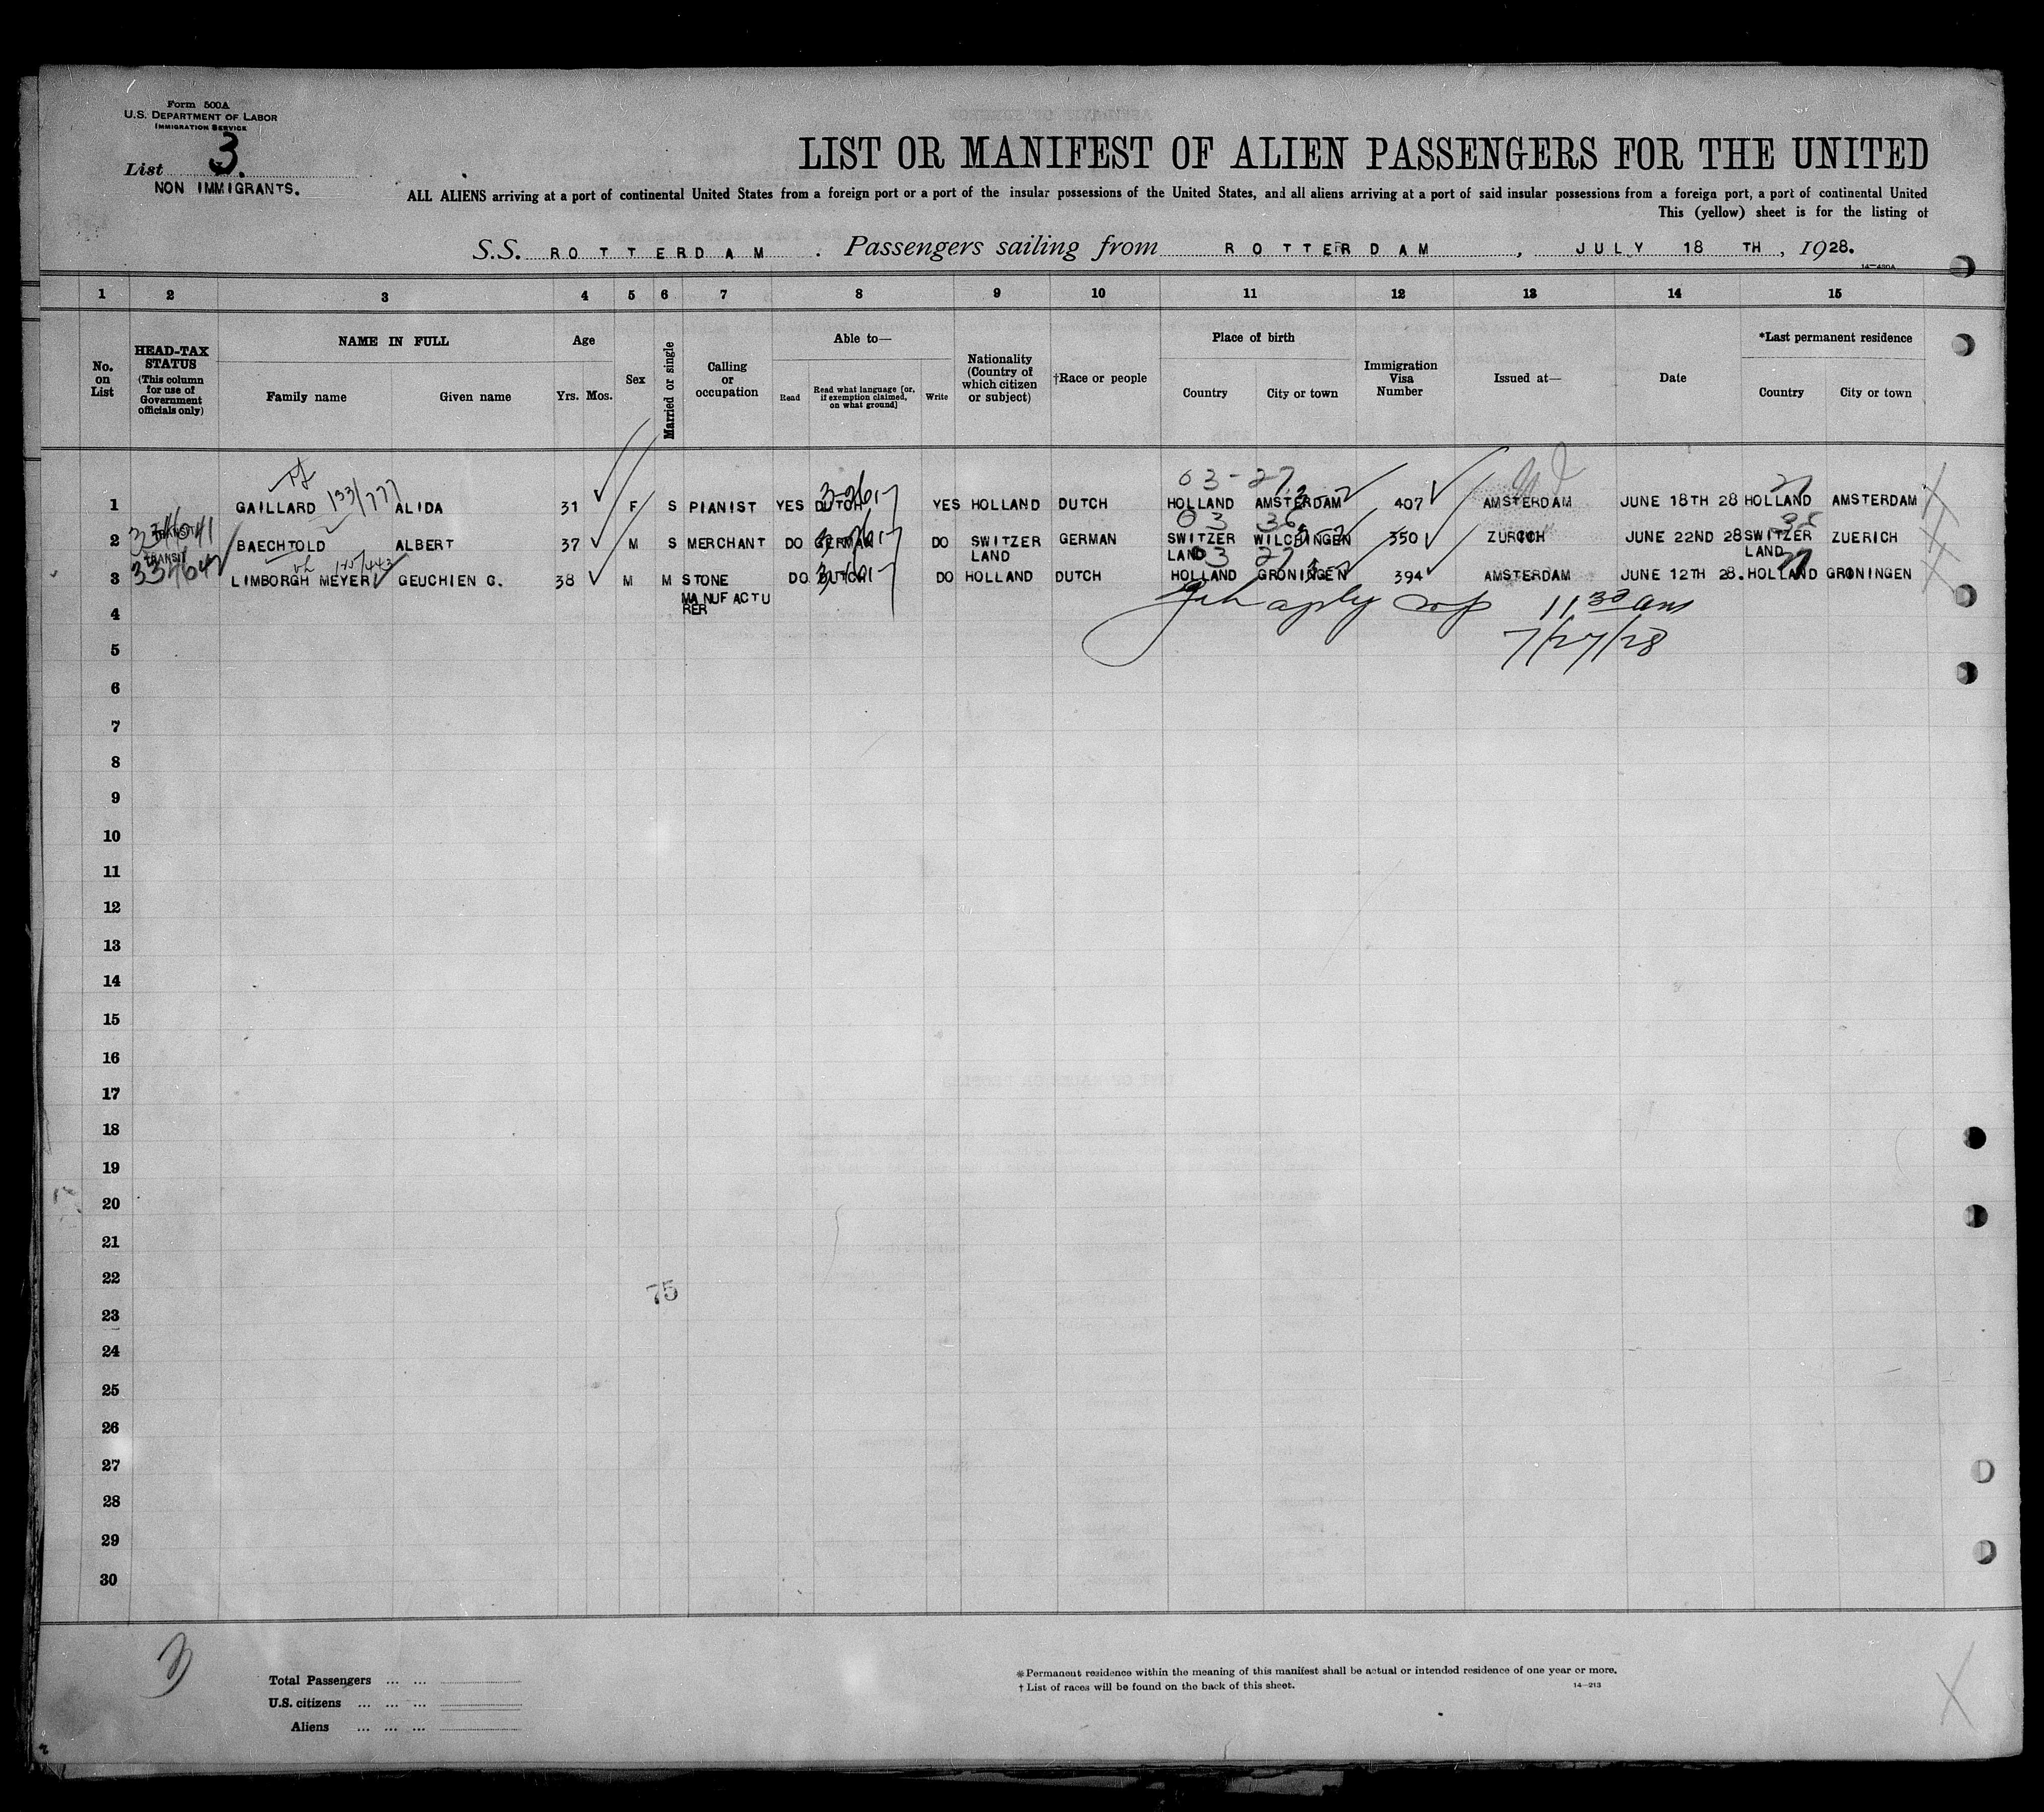 Form 500A
U.S. DEPARTMENT OF LABOR
IMMIGRATION SERVICE
List 3.
NON IMMIGRANTS.
LIST OR MANIFEST OF ALIEN PASSENGERS FOR THE UNITED
ALL ALIENS arriving at a port of continental United States from a foreign port or a port of the insular possessions of the United States, and all aliens arriving at a port of said insular possessions from a foreign port, a port of continental United
This (yellow) sheet is for the listing of
S.S. ROTTERDAM . Passengers sailing from ROTTERDAM , JULY 18 TH , 1928.
14—430A
1 2 3 4 5 6 7 8 9 10 11 12 13 14 15
No. on List
HEAD-TAX STATUS (This column for use of Government officials only)
NAME IN FULL
Family name Given name
Age
Yrs. Mos.
Sex
Married or single
Calling or occupation
Able to—
Read
Read what language [or, if exemption claimed, on what ground]
Write
Nationality (Country of which citizen or subject)
†Race or people
Place of birth
Country City or town
Immigration Visa Number
Issued at—
Date
*Last permanent residence
Country City or town
03-27 27
1 GAILLARD 133/777 ALIDA 31 F S PIANIST YES DUTCH YES HOLLAND DUTCH HOLLAND AMSTERDAM 407 AMSTERDAM JUNE 18TH 28 HOLLAND AMSTERDAM
03 36
2 BAECHTOLD ALBERT 37 M S MERCHANT DO GERMAN DO SWITZER LAND GERMAN SWITZER LAND WILCHINGEN 350 ZURICH JUNE 22ND 28 SWITZER LAND ZUERICH
TRANSIT
03 27 27
3 LIMBORGH MEYER GEUCHIEN G. 38 M M STONE MANUFACTURER DO DUTCH DO HOLLAND DUTCH HOLLAND GRONINGEN 394 AMSTERDAM JUNE 12TH 28. HOLLAND GRONINGEN
11 30 am
7/27/28
4
5
6
7
8
9
10
11
12
13
14
15
16
17
18
19
20
21
22
75
23
24
25
26
27
28
29
30
3
Total Passengers ... ...
U.S. citizens ... ... ...
Aliens ... ... ...
*Permanent residence within the meaning of this manifest shall be actual or intended residence of one year or more.
†List of races will be found on the back of this sheet.
14—213